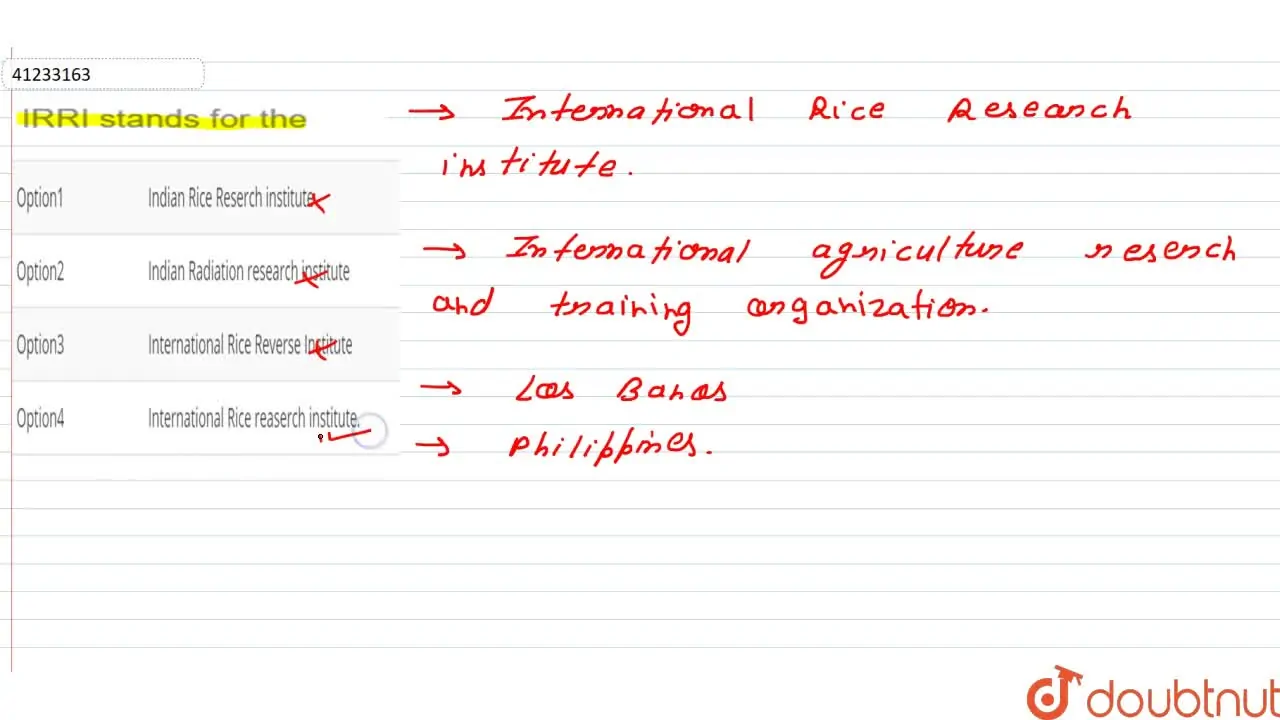 41233163
IRRI stands for the
Option1 Indian Rice Reserch institute
Option2 Indian Radiation research institute
Option3 International Rice Reverse Institute
Option4 International Rice reaserch institute.
→ International Rice Research
institute.
→ International agriculture reserch
and training organization.
→ Los Banos
→ Philippines.
doubtnut